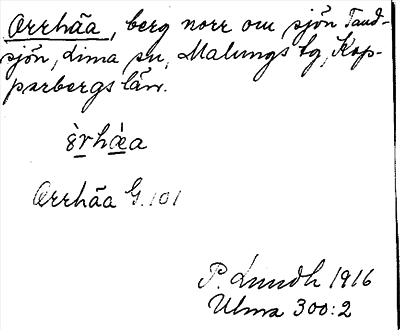 Orrhåa, berg norr om sjön Tand-
sjön, Lima sn, Malungs tg, Kop-
parbergs län.
ɛ̀rhæ̀a
Orrhåa G. 101
P. Lundh 1916
Ulma 300:2